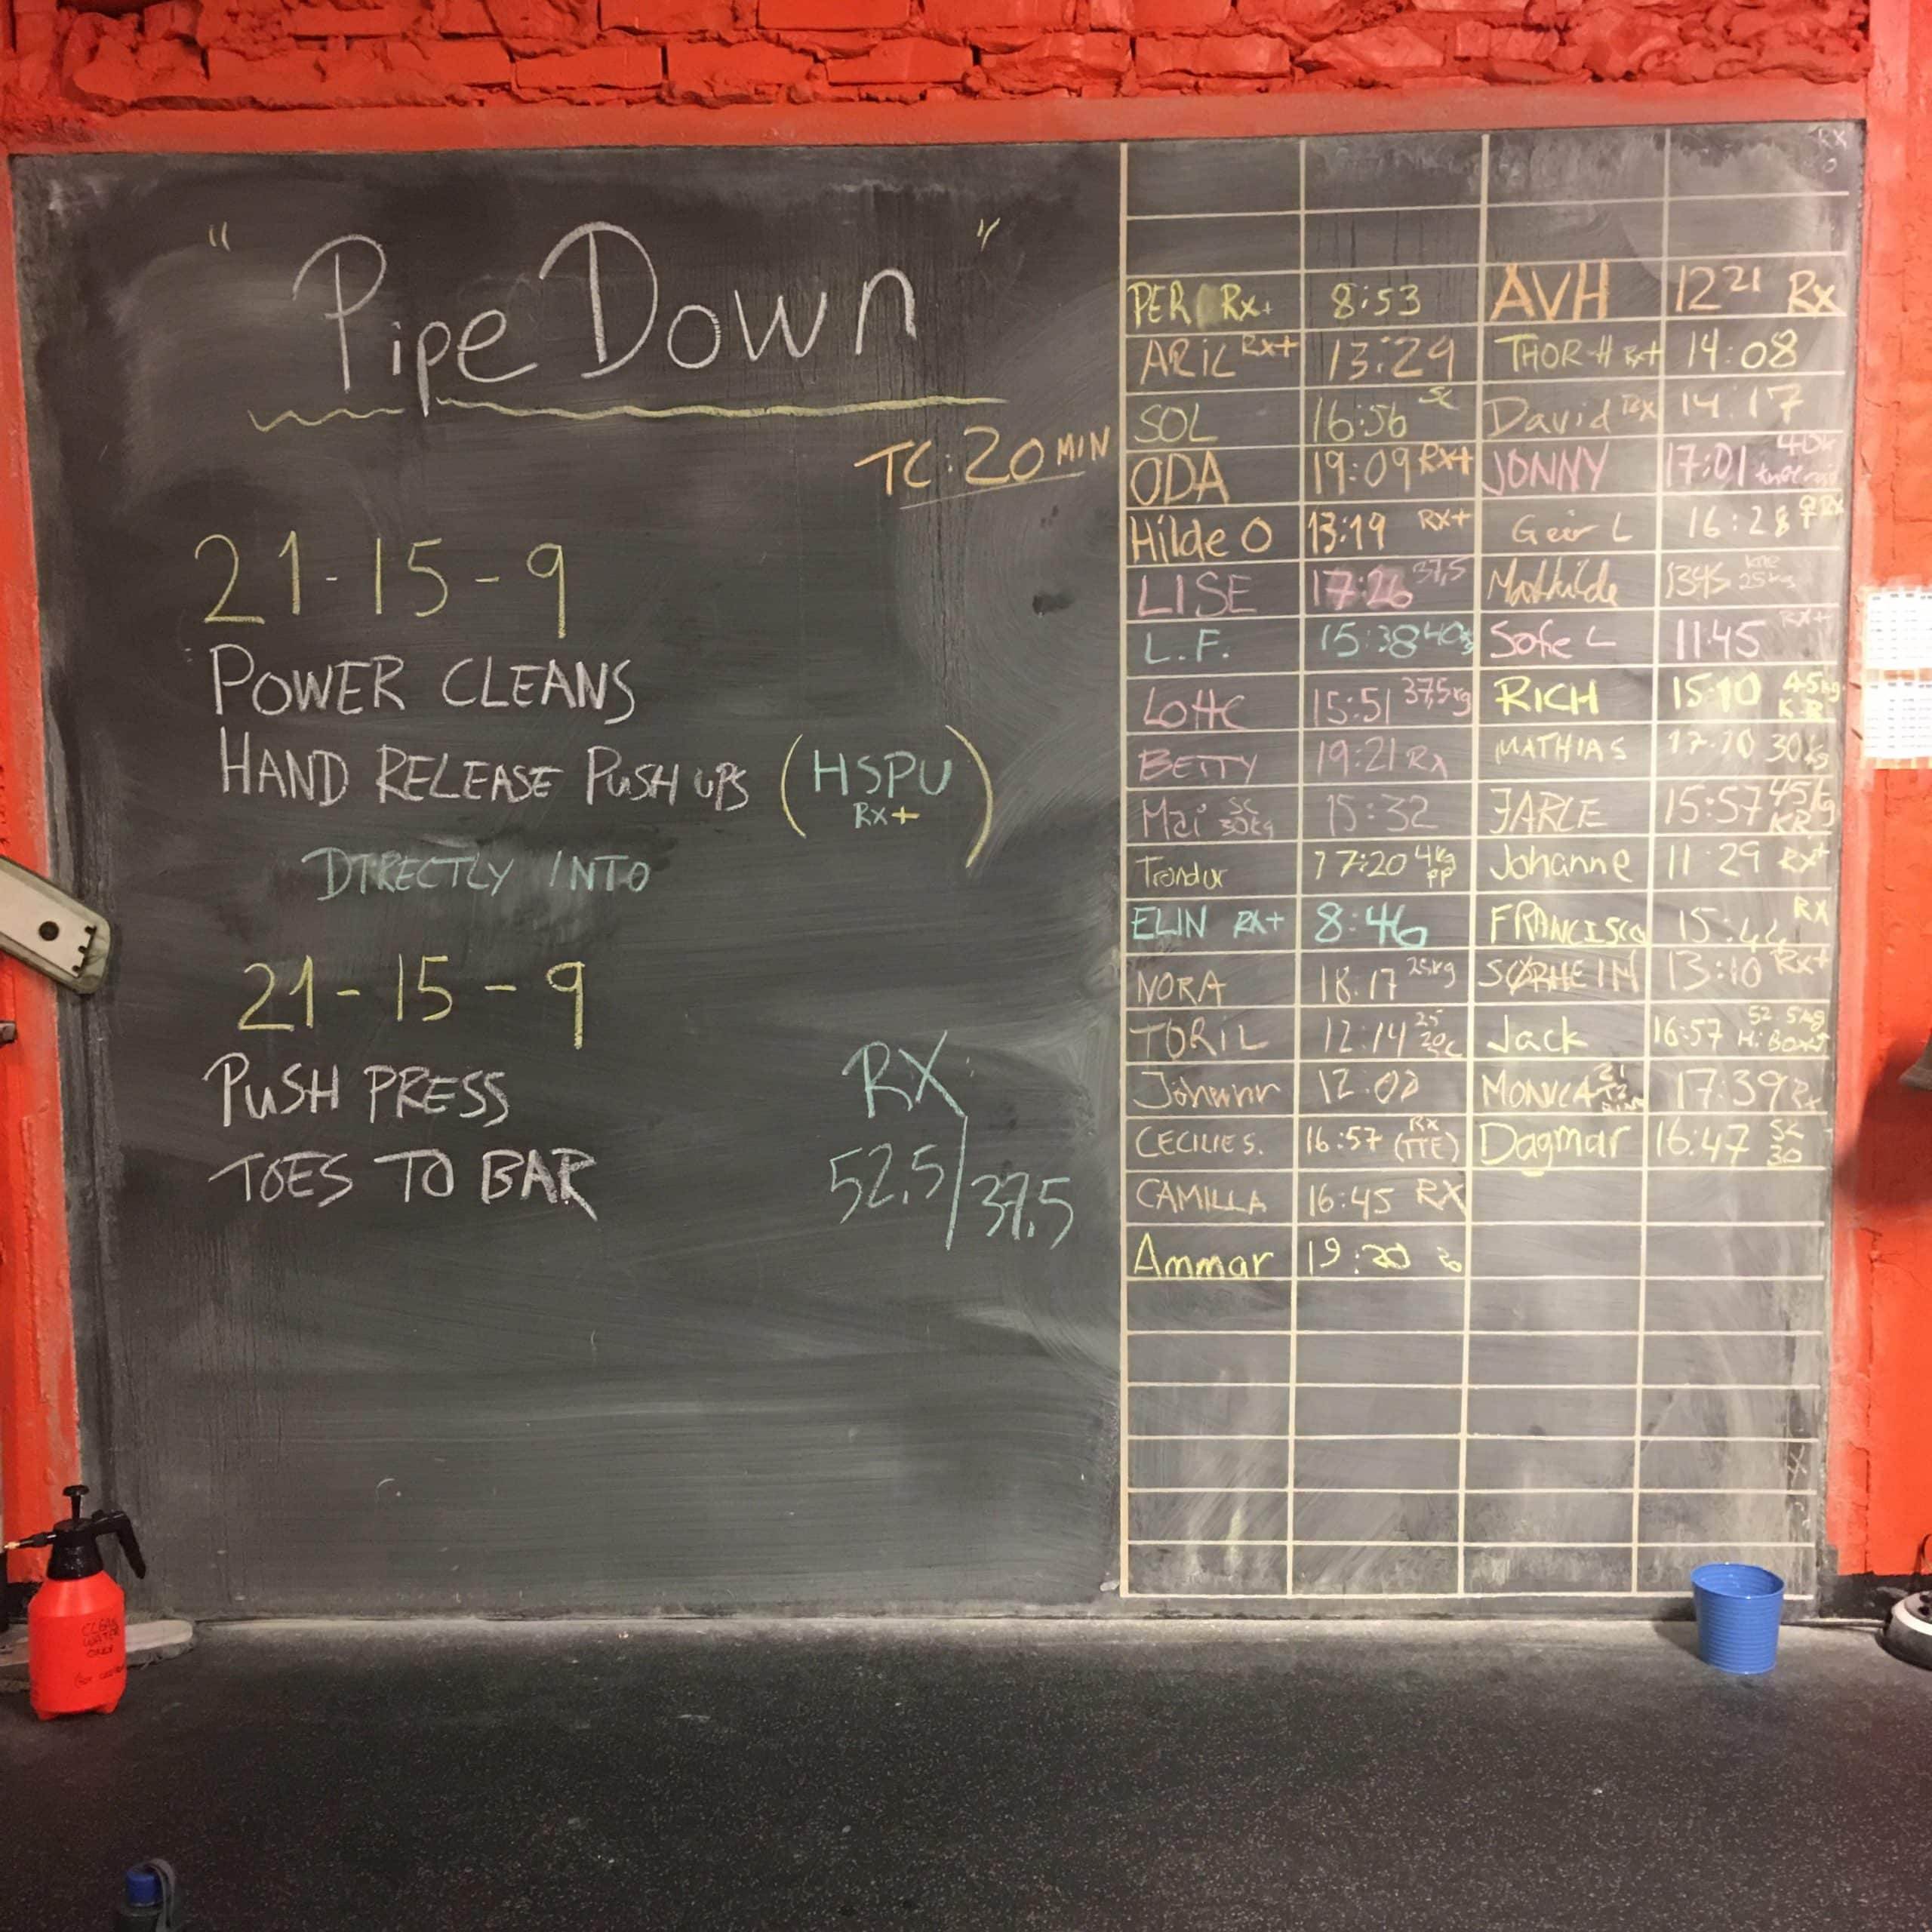 "Pipe Down"
TC: 20 MIN
21-15-9
POWER CLEANS
HAND RELEASE PUSH UPS (HSPU
RX+)
DIRECTLY INTO
21-15-9
PUSH PRESS
TOES TO BAR
RX
52,5/37,5
PER RX+ 8:53
ARIL RX+ 13:29
SOL 16:56 SC
ODA 19:09 RX+
Hilde O 13:19 RX+
LISE 17:26 37,5
L.F. 15:38 40
Lotte 15:51 37,5kg
BETTY 19:21 Rx
Mai SC 30kg 15:32
Trondur 17:20 4kg PP
ELIN RX+ 8:46
NORA 18:17 25kg
TORIL 12:14 25
CECILIE S. 16:57 RX (TTE)
CAMILLA 16:45 RX
Ammar 19:20
AVH 12 21 Rx
THOR-H Rx+ 14:08
David Rx 14:17
JONNY 17:01
Geir L 16:28
Mathilde 1345 25kg
Sofie L 11:45 RX+
RICH 15:10 45kg
MATHIAS 17:10 30kg
JARLE 15:57 45kg KR
Johanne 11:29 Rx+
FRANCISCO RX
SØRHEIM 13:10 Rx+
Jack 16:57 52.5kg
MONICA 17:39 Rx
Dagmar 16:47 SC 30
CLEAN
WATER
ONLY